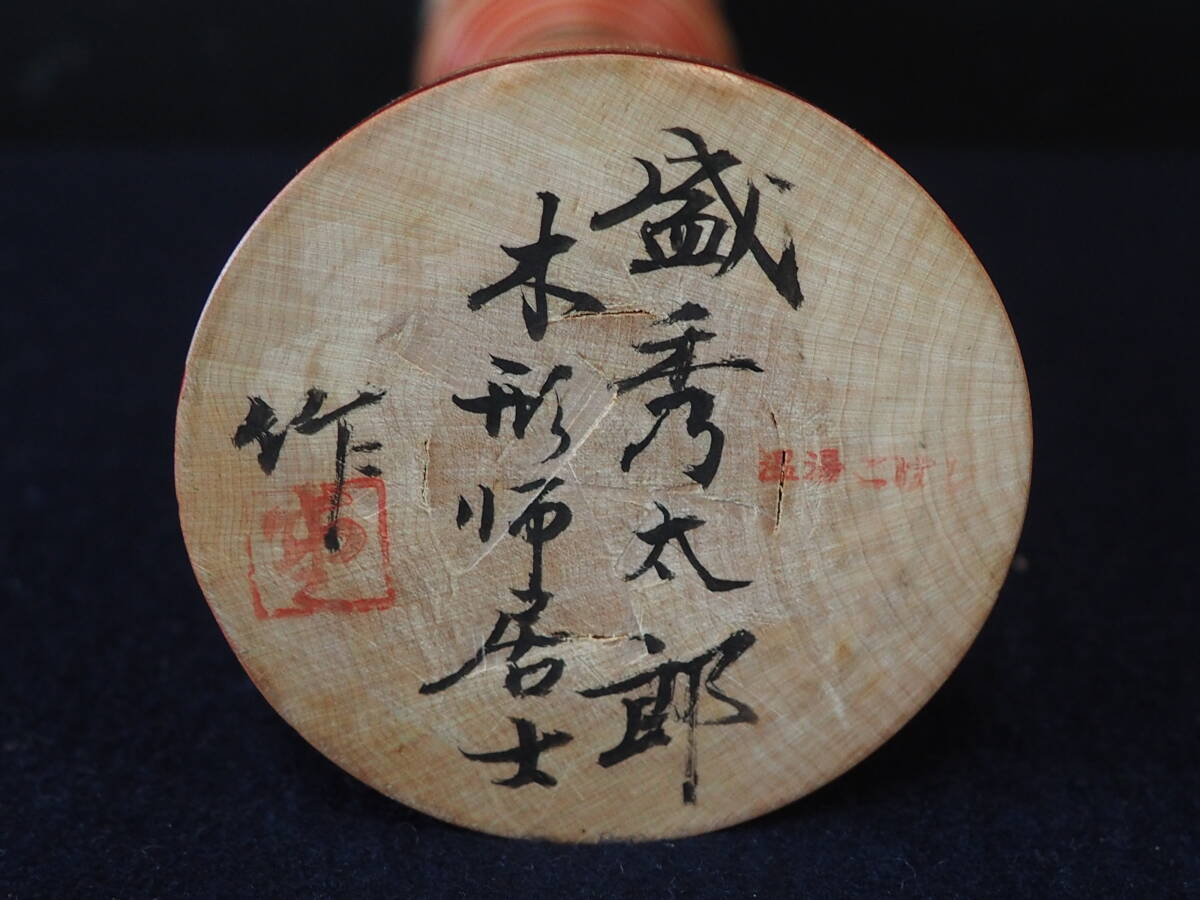 温湯こけし
盛秀太郎
木形师居士
作